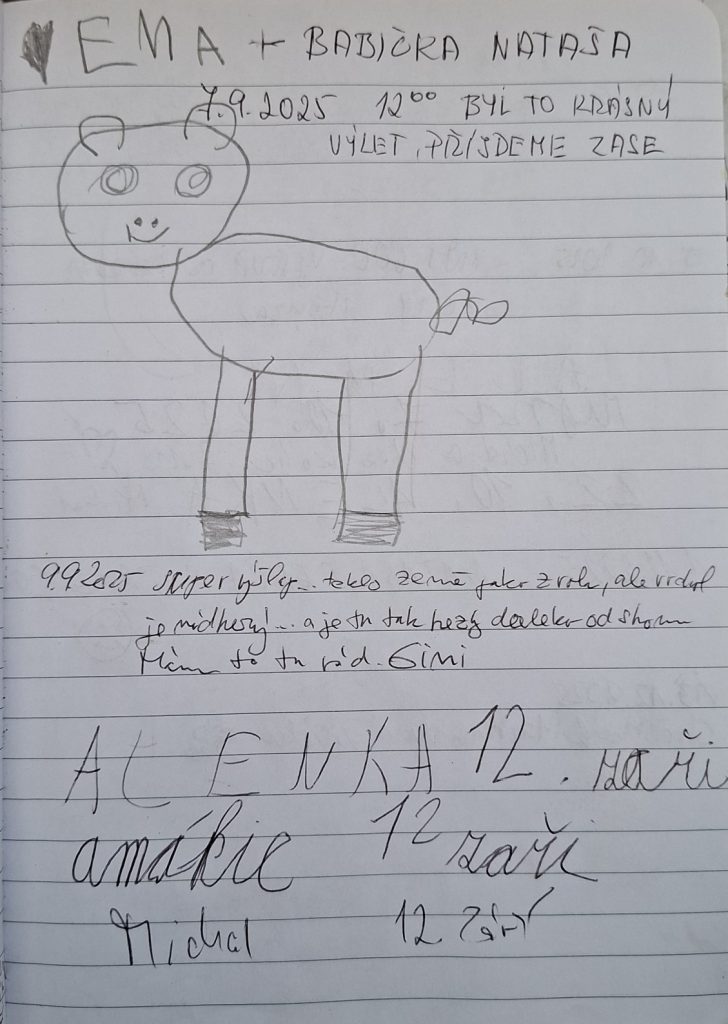 EMA + BABIČKA NATAŠA
7.9.2025 12⁰⁰ BYL TO KRÁSNÝ
VÝLET, PŘIJDEME ZASE
9.9 2025 super výšlap... teklo země jako z, ale vrchol
je nádherný... a je tu tak hezky daleko od shonu
Mám to tu rád. Gimi
ALENKA 12. září
amálie 12 září
Michal 12 Září